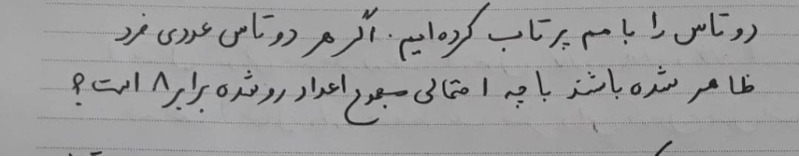 دو تاس را با هم پرتاب کرده‌ایم. اگر هر دو تاس عددی فرد
ظاهر شده باشند با چه احتمالی مجموع اعداد رو شده برابر ۸ است؟